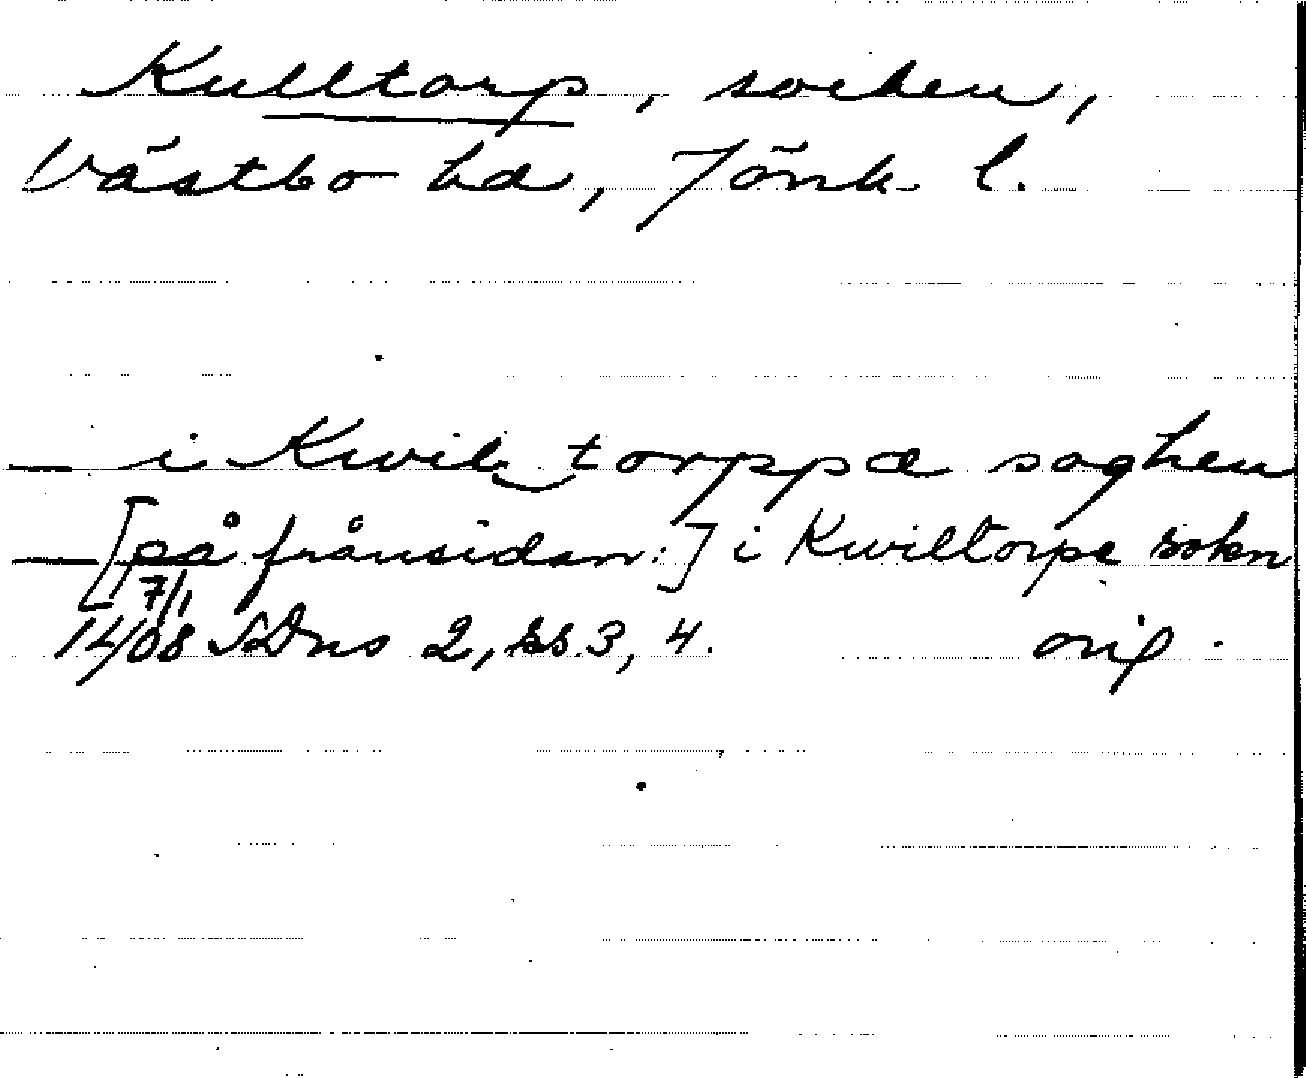 Kulltorp, socken,
Västbo hd, Jönk. l.
— i Kwil torppæ soghen
— [på frånsidan:] i Kwiltorpe sokn
7/1
14/08 SDns 2, ss. 3, 4. orig.